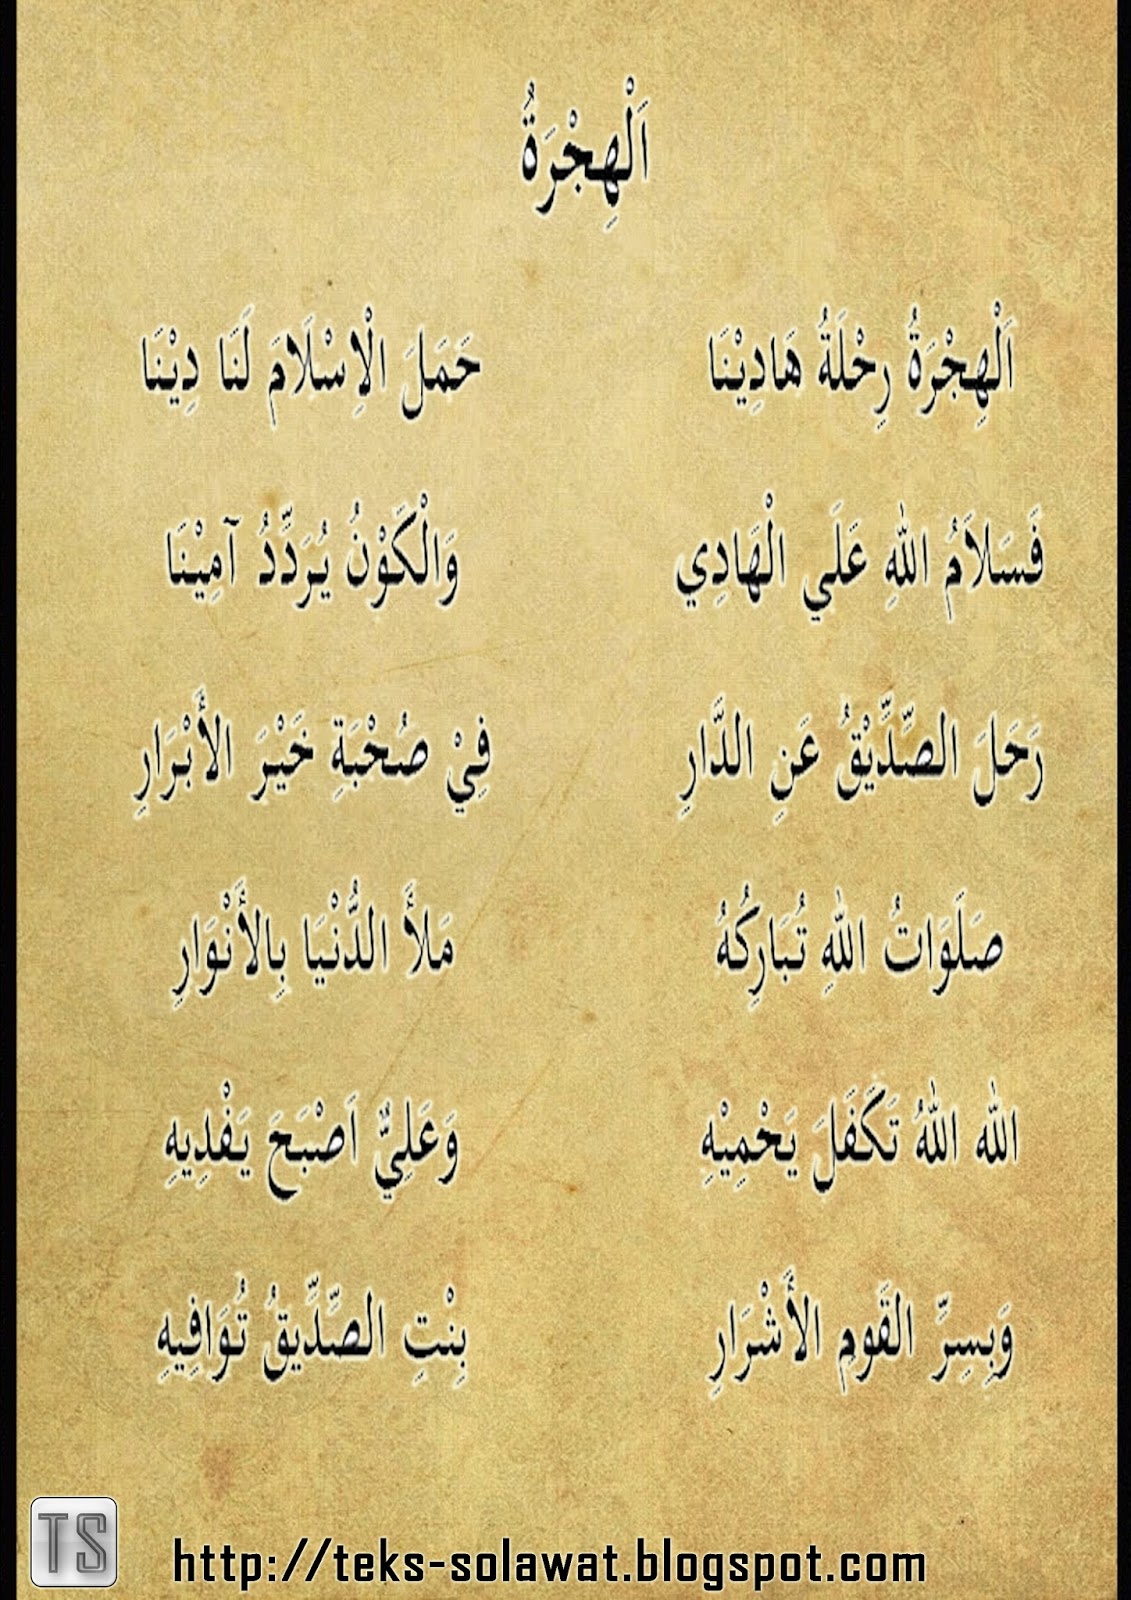 اَلْهِجْرَةُ
اَلْهِجْرَةُ رِحْلَةُ هَادِيْنَا حَمَلَ الْاِسْلَامَ لَنَا دِيْنَا
فَسَلاَمُ اللهِ عَلَي الْهَادِي وَالْكَوْنُ يُرَدِّدُ آمِيْنَا
رَحَلَ الصِّدِّيْقُ عَنِ الدَّارِ فِيْ صُحْبَةِ خَيْرَ الأَبْرَارِ
صَلَوَاتُ اللهِ تُبَارِكُهُ مَلأَ الدُّنْيَا بِالأَنْوَارِ
الله اللهُ تَكَفَلَ يَحْمِيْهِ وَعَلِيٌّ اَصْبَحَ يَفْدِيهِ
وَبِسِرِّ القَومِ الأَشْرَارِ بِنْتِ الصِّدِّيقُ تُوَافِيهِ
TS http://teks-solawat.blogspot.com